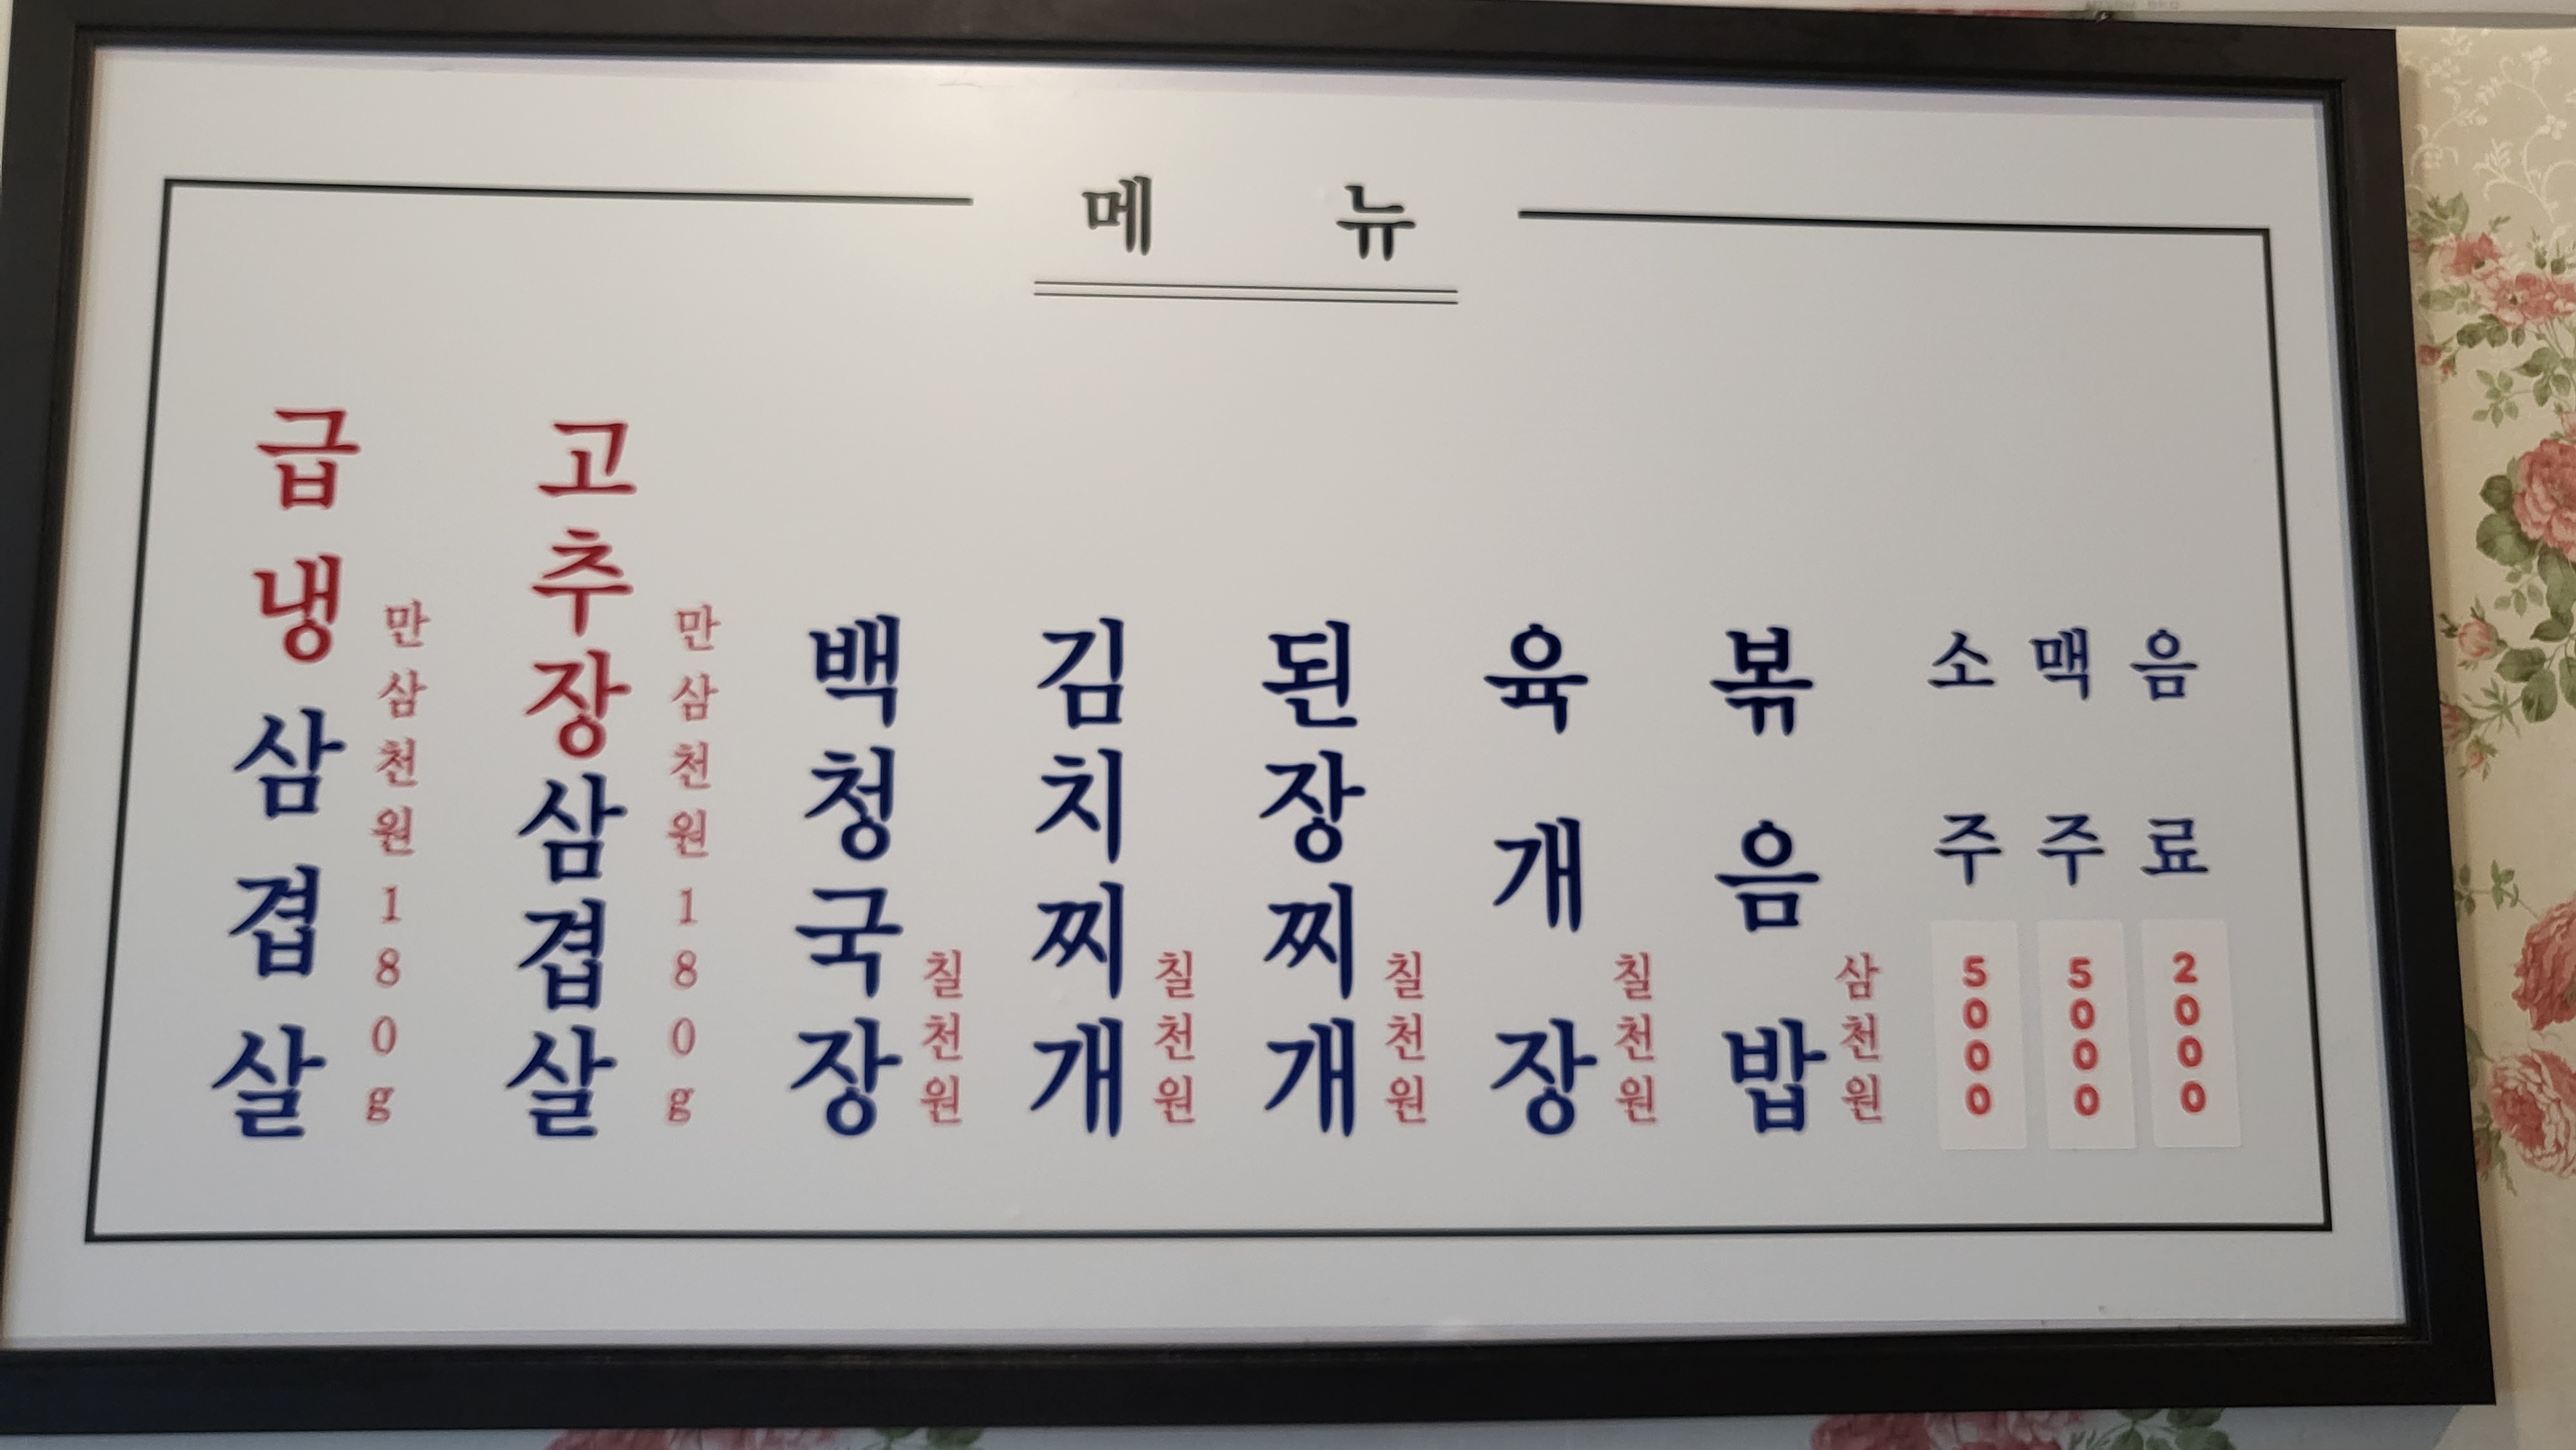 메뉴
급냉삼겹살
만삼천원180g
고추장삼겹살
만삼천원180g
백청국장
칠천원
김치찌개
칠천원
된장찌개
칠천원
육개장
칠천원
볶음밥
삼천원
소주
5000
맥주
5000
음료
2000